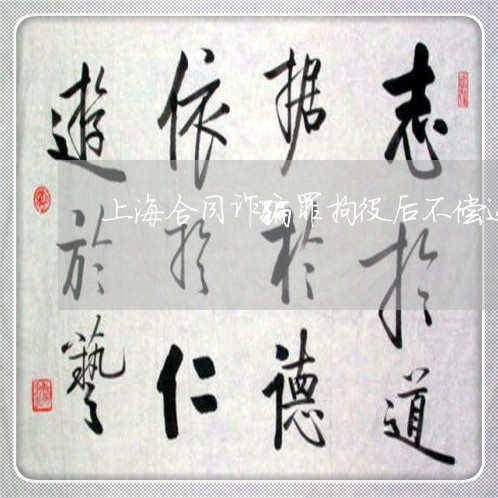 志於道
据於德
依於仁
遊於藝
上海合同诈骗罪拘役后不偿